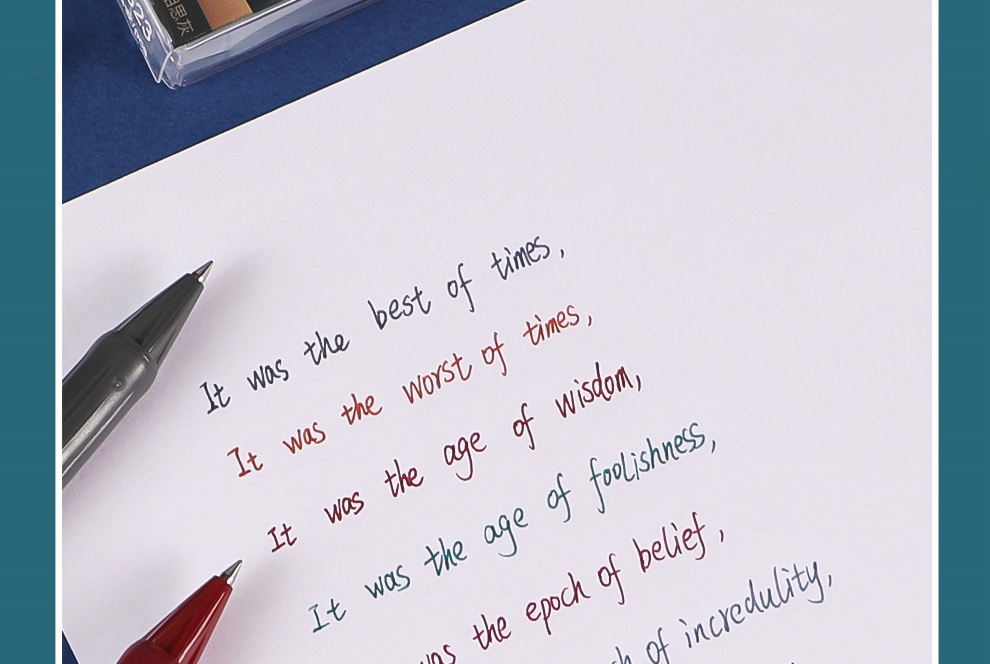 023
相思灰
It was the best of times,
It was the worst of times,
It was the age of wisdom,
It was the age of foolishness,
was the epoch of belief,
of incredulity,